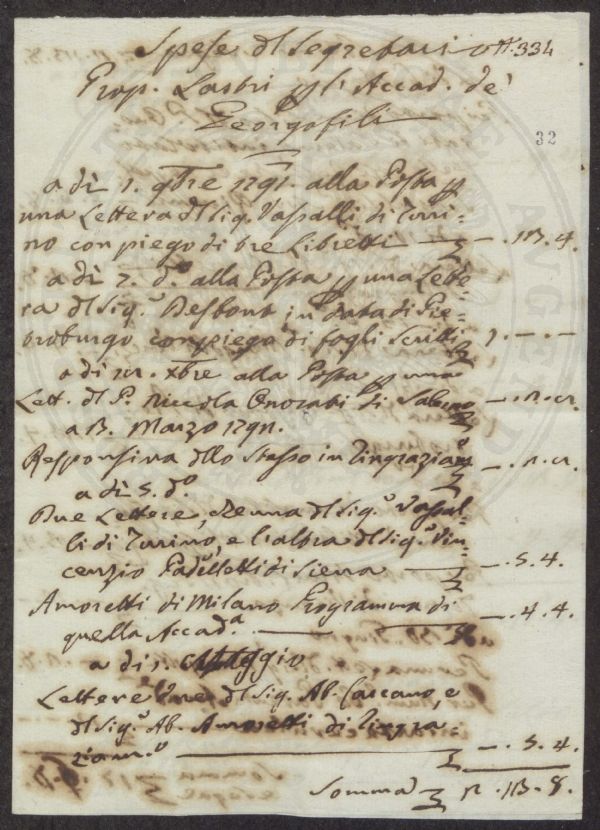 Spese del Segretari o N. 334
Prop. Lastri per l'Accad. de'
Georgofili
32
a dì 1. 9bre 1791. alla Posta per
una Lettera del Sig. Vassalli di Turi-
no con piego di tre Libretti — . 13. 4.
a dì 7. do. alla Posta per una Lette-
ra del Sig.r in data di Pie-
troburgo con piego di fogli scritti 1. — . —
a dì . Xbre alla Posta per una
Lett. del P. Niccola Onorati di Salerno — .
a Marzo
Responsiva dello Stesso in ringraziam.o — .
a dì 5. do.
Due Lettere, che una del Sig.r Vassal-
li di Turino, e l'altra del Sig.r Vin-
cenzio Padelletti di Siena — . 5. 4.
Amoretti di Milano Programma di
quella Accad.a — . 4. 4.
a dì 1. Maggio
Lettere due del Sig. Ab. Caccano, e
del Sig.r Ab. Amoretti di ringra
ziam.o — . 5. 4.
Somma . 13. 8.